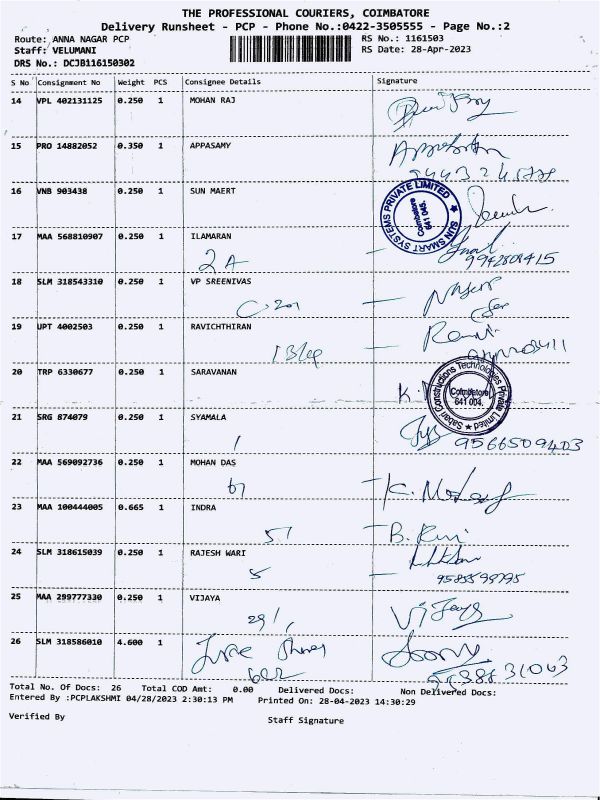 THE PROFESSIONAL COURIERS, COIMBATORE
Delivery Runsheet - PCP - Phone No.:0422-3505555 - Page No.:2
Route: ANNA NAGAR PCP
RS No.: 1161503
Staff: VELUMANI
RS Date: 28-Apr-2023
DRS No.: DCJB116150302
S No Consignment No Weight PCS Consignee Details Signature
14 VPL 402131125 0.250 1 MOHAN RAJ
15 PRO 14882052 0.350 1 APPASAMY
16 VNB 903438 0.250 1 SUN MAERT
SUN SMART SYSTEMS PRIVATE LIMITED
Coimbatore
641 045.
17 MAA 568810907 0.250 1 ILAMARAN
2A
9942801415
18 SLM 318543310 0.250 1 VP SREENIVAS
C-201
19 UPT 4002503 0.250 1 RAVICHTHIRAN
20 TRP 6330677 0.250 1 SARAVANAN
Sabari Constructions Technologies Private Limited
Coimbatore
641 004.
21 SRG 874079 0.250 1 SYAMALA
9566509403
22 MAA 569092736 0.250 1 MOHAN DAS
23 MAA 100444005 0.665 1 INDRA
51
24 SLM 318615039 0.250 1 RAJESH WARI
5
25 MAA 299777330 0.250 1 VIJAYA
26 SLM 318586010 4.600 1
Total No. Of Docs: 26 Total COD Amt: 0.00 Delivered Docs: Non Delivered Docs:
Entered By :PCPLAKSHMI 04/28/2023 2:30:13 PM Printed On: 28-04-2023 14:30:29
Verified By
Staff Signature